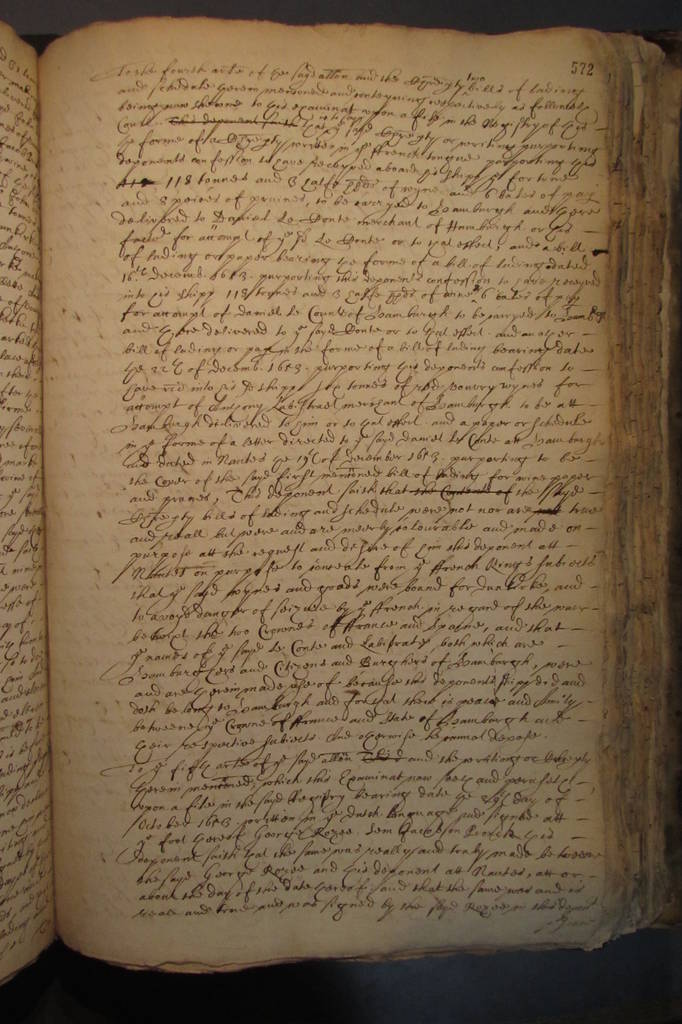 572
To the fourth arle of the sayd allon and the Charter party two bills of lading
and schedule therein mentioned and conteyning respectively as followeth
being now showne to this examinat upon a file in the Registry of this
Court
the forme of a Charter party written in the ffrench tongue purporting this
deponents confession to have received aboard his shipp the fortune
118 tonnes and 3 halfe hhds of wyne and 6 bales of pap
and 8 peeces of pruines, to be carryed to Hamburgh and there
delivered to Daniel Le Conte merchant of Hamburgh or his
factor for accompt of the sd Le Conte or to that effect, and a bill
of lading or paper bearing the forme of a bill of lading dated
16th December 1653. purporting this deponents confession to have received
into his shipp 118 tonnes and 3 halfe hhds of wine 6 bales of pap
for accompt of daniel Le Conte of Hamburgh to be carryed to
and there delivered to the sayd Conte or to that effect. and another
bill of lading or paper in the forme of a bill of lading bearing date
the 22th of decemb. 1653. purporting this deponents confession to
have recd into his sd shipp tonnes of wynes for
accompt of Anthony Labistrate merchant of Hamburgh to be att
Hamburgh delivered to him or to that effect. and a paper or schedule
in the forme of a letter directed to the sayd daniel Le Conte at Hamburgh
and dated in Nantes the 19th of December 1653. purporting to be
the Cover of the sayd first mentioned bill of lading for wine paper
and prunes, This deponent saith that the Contents of the sayd
Charter party bills of lading and schedule were not nor are true
and reall but were and are meerly colourable and made on
purpose att the request and desire of him this deponent att
Nantes on purpose to conceale from the ffrench Kings subiects
that the sayd wynes and goods were bound for Dunkirke, and
to avoyd danger of seizure by the ffrench in regard of the warr
betwixt the two Crownes of ffrance and Spaine, and that
the names of the sayd Le Conte and Labistrate, both which are
Hamburgers and Citizens and Burghers of Hamburgh, were
and are therein made use of because this deponents shipp did and
doth belong to Hamburgh and for that there is peace and Amity
betweene the Crowne of ffrance and State of Hamburgh and
their respective subiects. And otherwise he cannot depose.
To the fifth arle of the sayd allon and the writing or
therein mentioned, which this Examinat now sees and peruseth
upon a file in the sayd Registry bearing date the day of
October 1653 written in the dutch language and signed att
the foot thereof George Rozee. Jem Jacobson his
deponent saith that the same was really and truly made betweene
the sayd George Rozee and this deponent att Nantes, att or
about the day of the date thereof, and that the same was and is
reall and true and was signed by the sayd Rozee in this depots